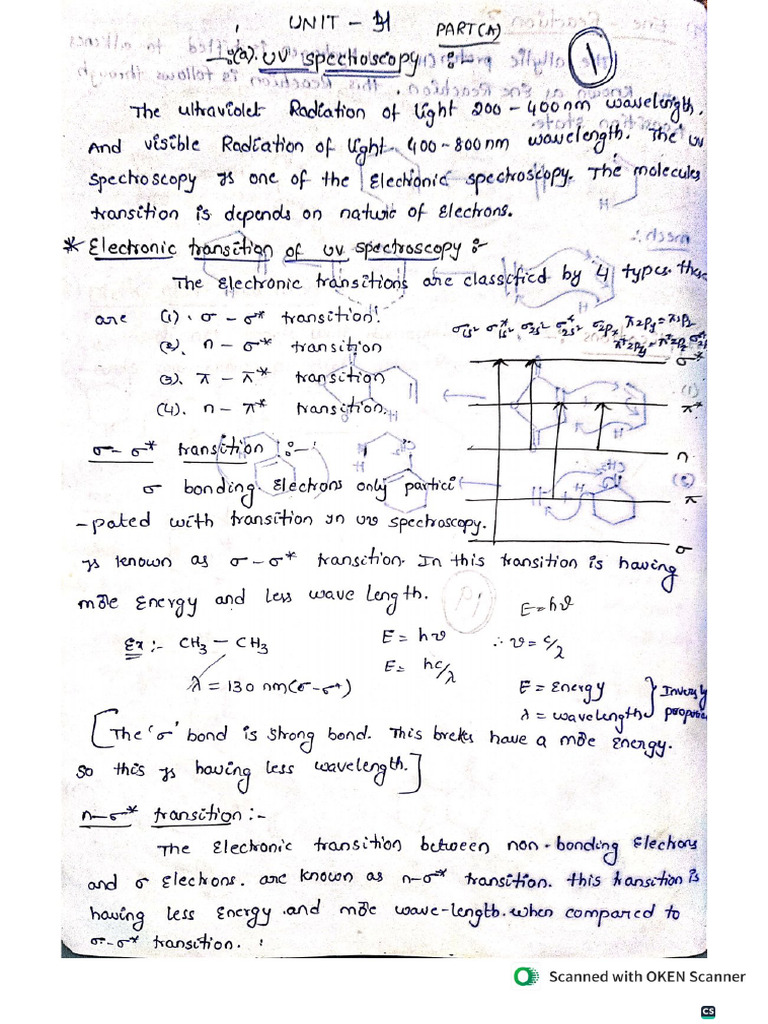 UNIT - II PART(A)
(a). UV spectroscopy :- 1
The ultraviolet Radiation of light 200 - 400 nm wavelength.
And visible Radiation of light 400 - 800 nm wavelength. The uv
spectroscopy is one of the Electronic spectroscopy. The molecules
transition is depends on nature of Electrons.
* Electronic transition of uv spectroscopy :-
The Electronic transitions are classified by 4 types. these
are (1). σ - σ* transition.
(2). n - σ* transition
(3). π - π* transition
(4). n - π* transition.
σ1s² σ*1s² σ2s² σ*2s² σ2px π2py = π2pz
σ*
π*
n
π
σ
σ - σ* transition :-
σ bonding Electrons only partici
-pated with transition in uv spectroscopy.
is known as σ - σ* transition. In this transition is having
more Energy and less wave length.
Ex :- CH3 - CH3
λ = 130 nm (σ - σ*)
E = hϑ
E = hc/λ
E = hϑ
∴ ϑ = c/λ
E = Energy
λ = wavelength
Inversly
[The 'σ' bond is strong bond. This brekes have a more Energy.
so this is having less wavelength.]
n - σ* transition :-
The Electronic transition between non-bonding Electrons
and σ Electrons. are known as n-σ* transition. this transition is
having less Energy and more wave-length. when compared to
σ-σ* transition.
Scanned with OKEN Scanner
CS